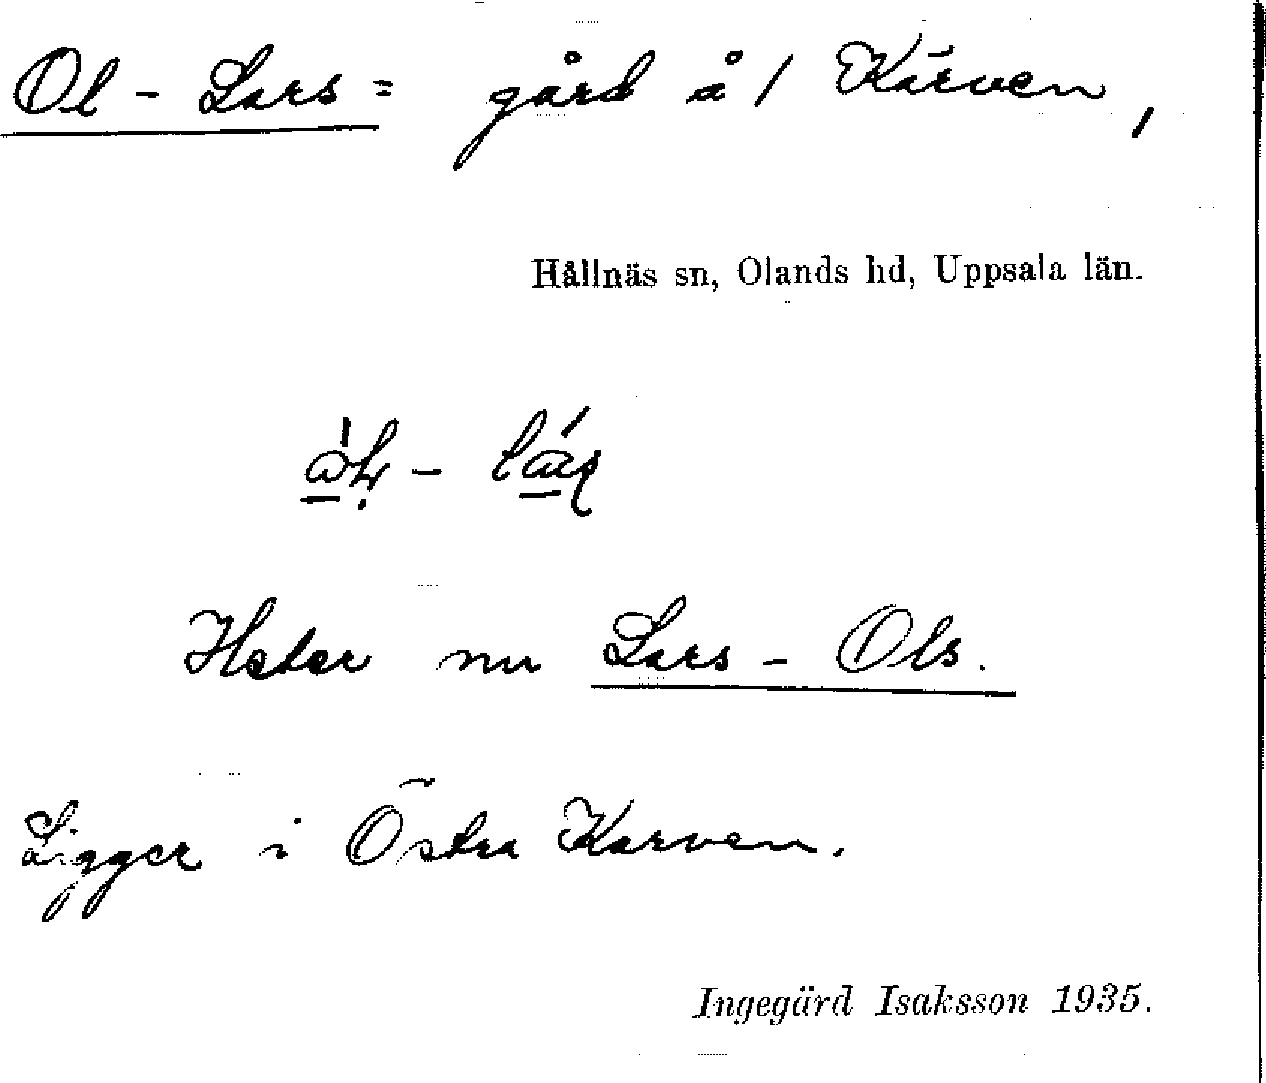 Ol-Lars= gård å/ Kärven,
Hållnäs sn, Olands hd, Uppsala län.
Heter nu Lars-Ols.
Ligger i Östra Karven.
Ingegärd Isaksson 1935.